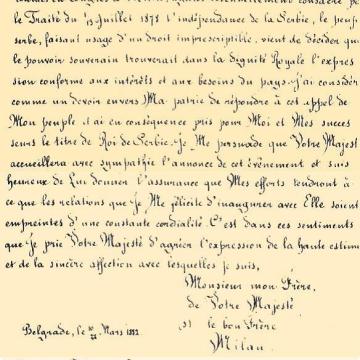 le Traité du 1/13 Juillet 1878 l'indépendance de la Serbie, le peuple
serbe, faisant usage d'un droit imprescriptible, vient de décider que
le pouvoir souverain trouverait dans la dignité Royale l'expres
sion conforme aux intérêts et aux besoins du pays. J'ai considér
comme un devoir envers Ma patrie de répondre à cet appel de
Mon peuple et ai en conséquence pris pour Moi et Mes succes
seurs le titre de Roi de Serbie. Je Me persuade que Votre Majest
accueillera avec sympathie l'annonce de cet évènement et suis
heureux de Lui donner l'assurance que Mes efforts tendront à
ce que les relations que Je Me félicite d'inaugurer avec Elle soient
empreintes d'une constante cordialité. C'est dans ces sentiments
que Je prie Votre Majesté d'agréer l'expression de la haute estime
et de la sincère affection avec lesquelles je suis,
Monsieur mon Frère,
de Votre Majesté
le bon Frère
Belgrade, le Mars 1882
Milan